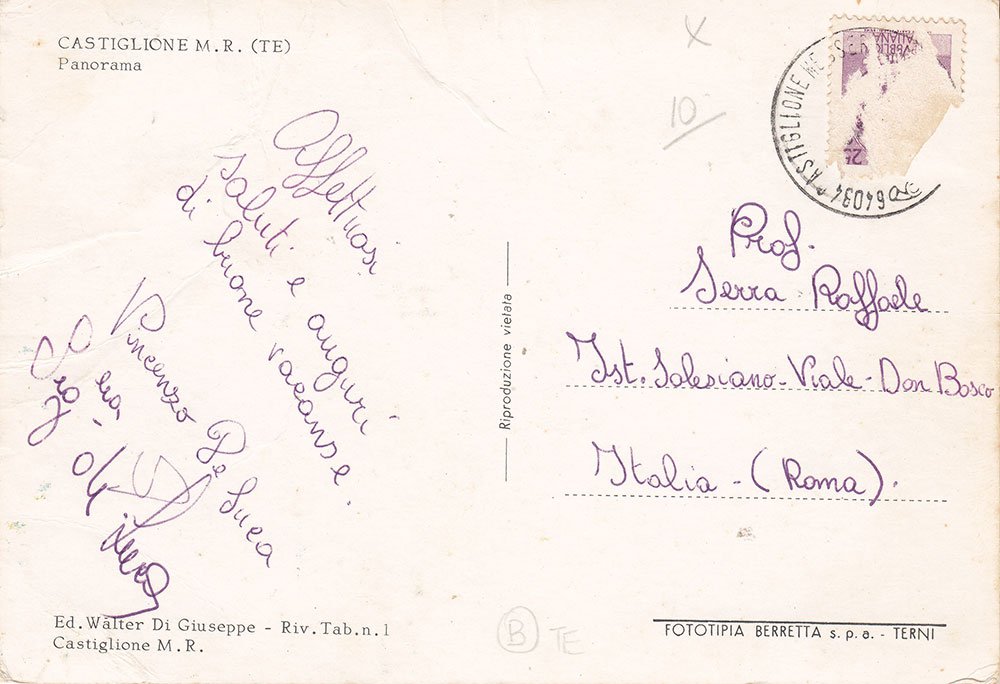 CASTIGLIONE M.R. (TE)
Panorama
Affettuosi
saluti e auguri
di buone vacanze.
Vincenzo De Luca
Ed. Walter Di Giuseppe - Riv. Tab. n. 1
Castiglione M.R.
Riproduzione vietata
X
10
CASTIGLIONE MESSER
64034
Prof.
Serra Raffaele
Ist. Salesiano - Viale - Don Bosco
Italia - (Roma).
B TE
FOTOTIPIA BERRETTA s.p.a. - TERNI